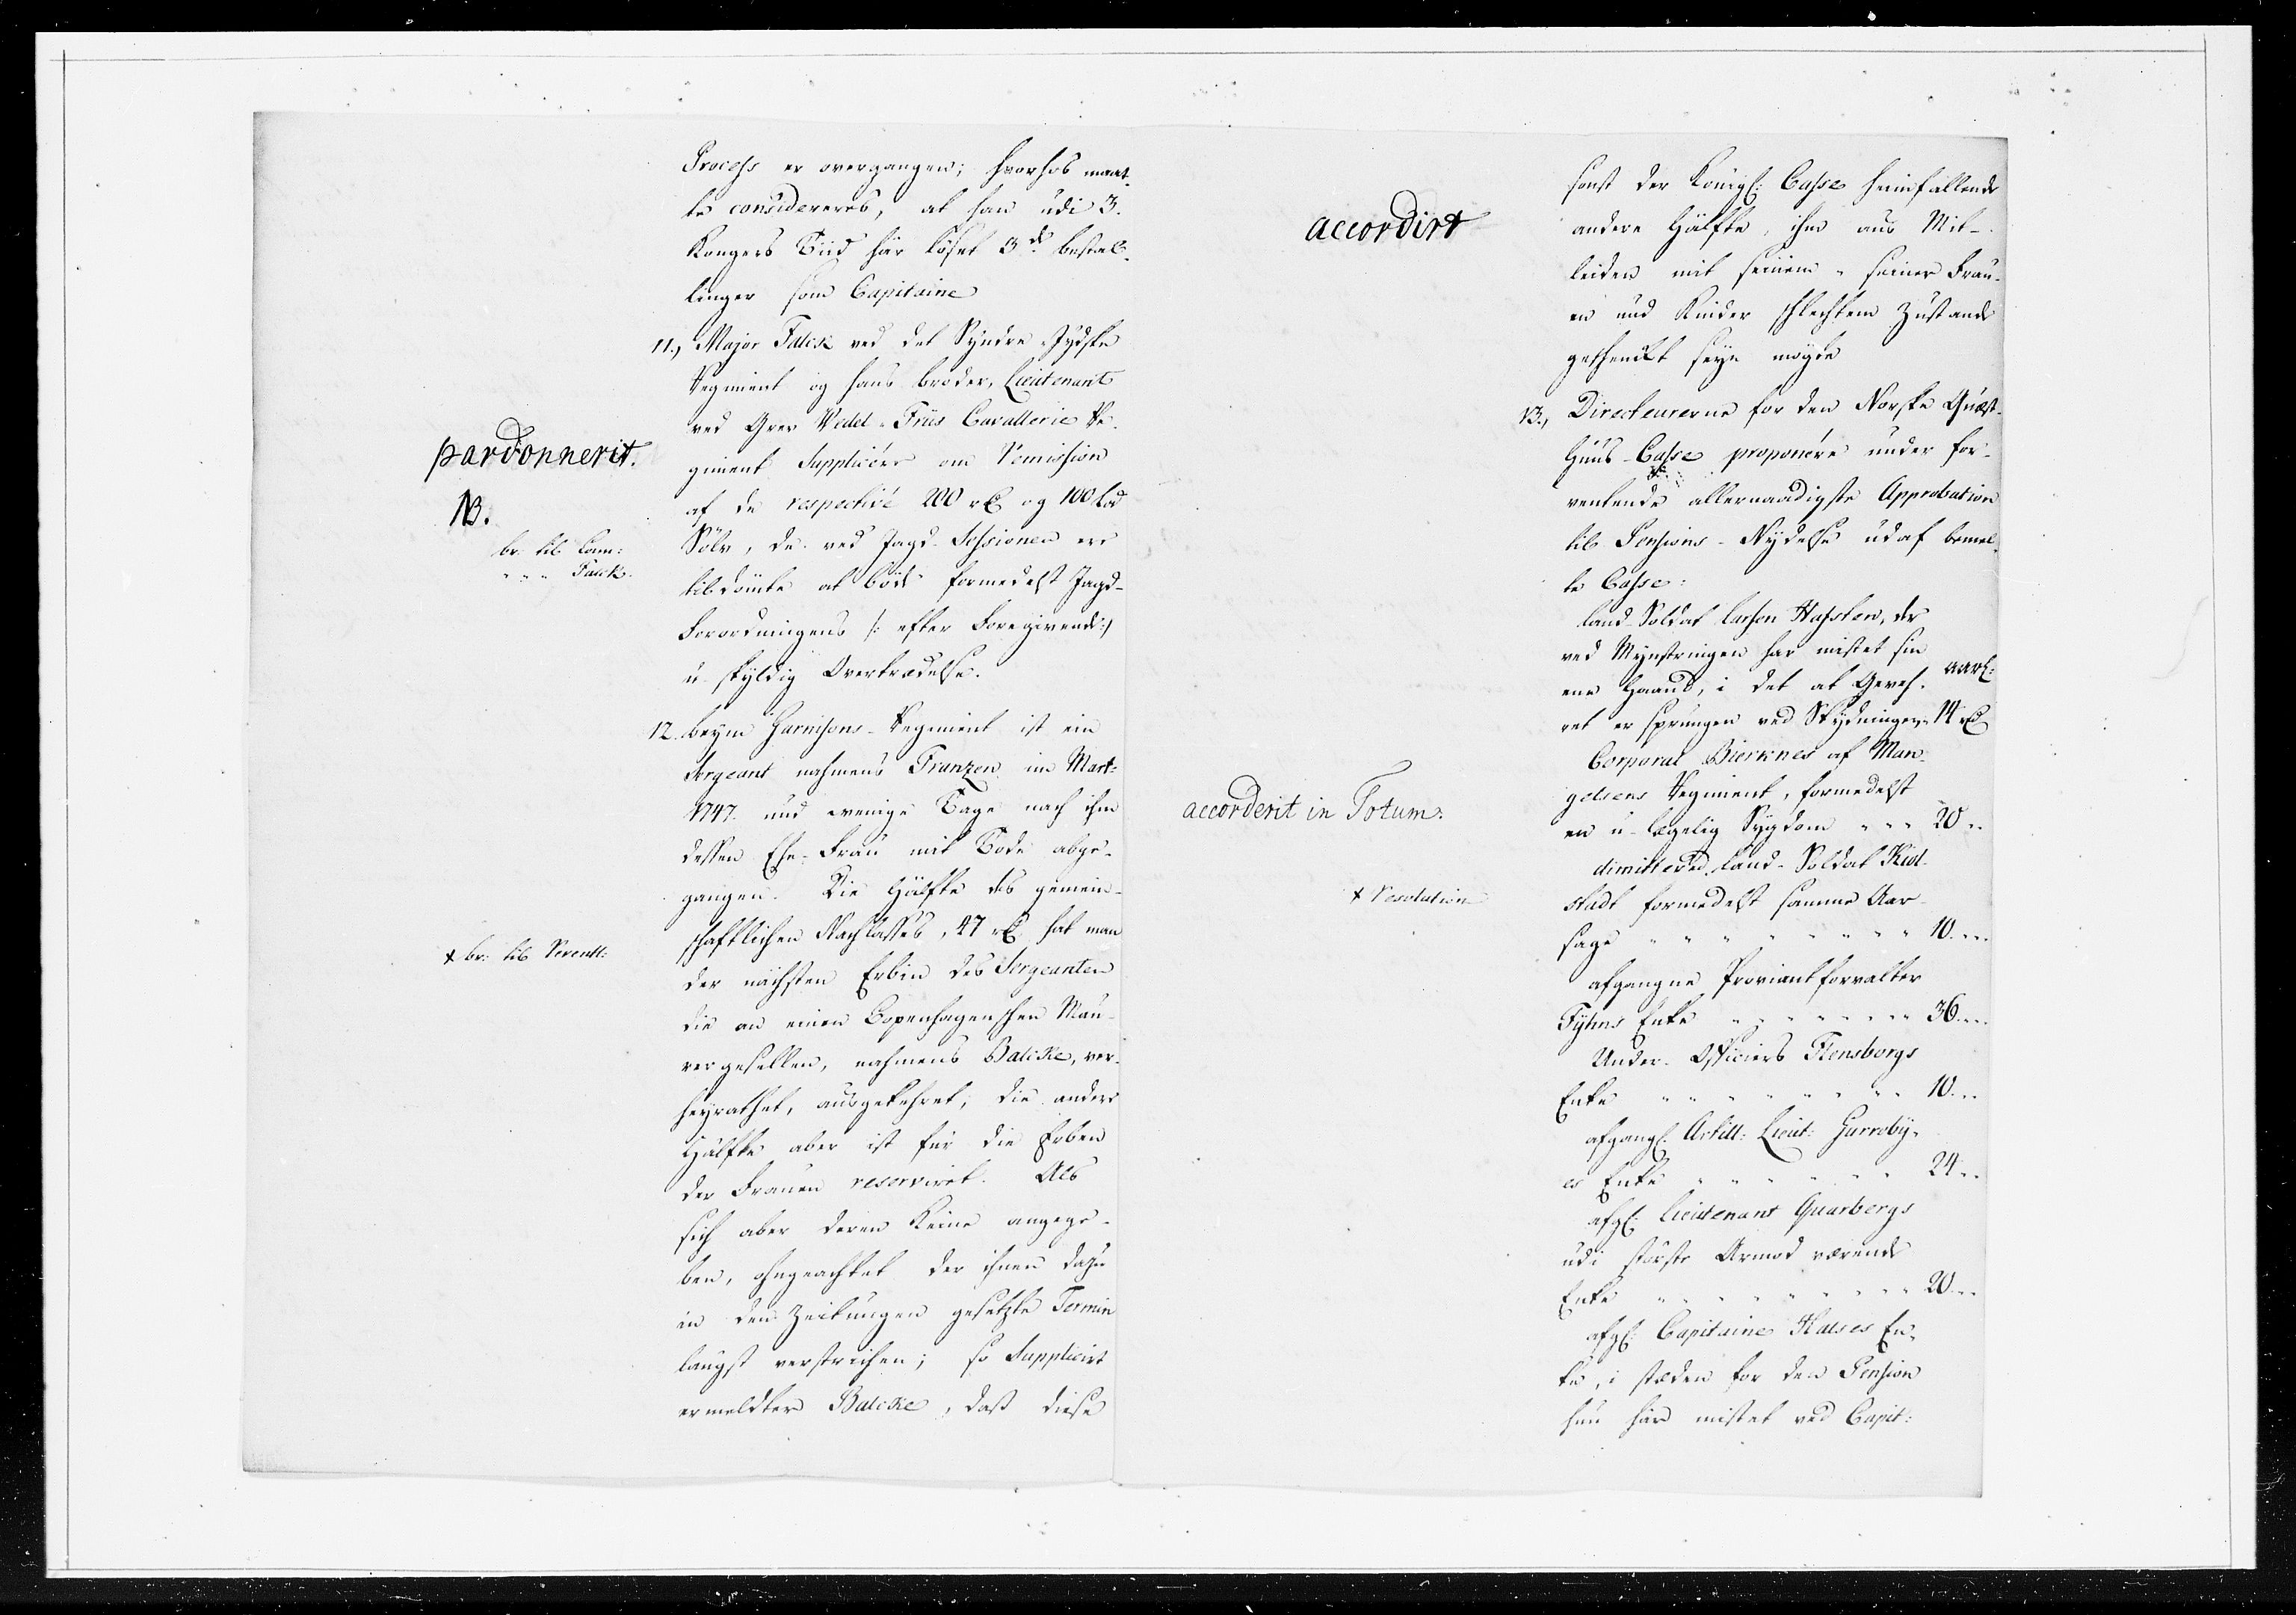 Process er overgangen; hvorhos maat-
te considereres, at han udi 3.
Kongers Tiid har løset 3de bestal-
linger som Capitaine
11., Major Falck ved det Syndre Jydske
Regiment og hans broder, Lieutenant
ved Grev Wedel-Friis Cavallerie Re-
giment Supplicere om Remission
af de respective 200 rd og 100 Lod
Sølv, de ved Jagd-Sessionen ere
tildømte at bøde formedelst Jagd-
Forordningens /: efter Foregivende :/
u-skyldig Overtrædelse.
pardonnerit.
NB.
br. til Com:
" " " Falck.
12. beym Garnisons-Regiment ist ein
Sergeant nahmens Franzen im Mart:
1747. und wenige Tage nach ihm
dessen Ehe-Frau mit Tode abge-
gangen. Die Hälfte des gemein-
schaftlichen Nachlasses, 47 rd hat man
der nächsten Erbin des Sergeanten
die an einen Copenhagenschen Mau-
rergesellen, nahmens Balcke, ver-
heyrathet, ausgekehret; die andere
Hälfte aber ist für die Erben
der Frauen reserviret. Als
sich aber deren Keine angege-
ben, ohngeachtet der ihnen dazu
in den Zeitungen gesetzte Termin
längst verstrichen; so Supplicirt
ermeldter Balcke, dass diese
x br: til Reventl:
sonst der Königl: Casse heimfallende
andere Hälfte, ihm aus Mit-
leiden mit seinem, seiner Frau-
en und Kinder schlechtem Zustande
geschenckt seyn mögte
accordirt
13., Directeurerne for den Norske Qvæst-
Huus-Casse proponere under for-
ventende allernaadigste Approbation
til Pensions-Nydelse udaf bemel-
te Casse:
Land-Soldat Larsen Hassten, der
ved Mynstringen har mistet sin
ene Haand, i det at Gevæh- aarl:
ret er sprungen ved Skydningen 14 rd
Corporal Bierknes af Man-
gelsens Regiment, formedelst
en u-lægelig Sygdom " " " 20 "
dimitteret Land-Soldat Kid-
stadt formedelst samme Aar-
sage " " " " " " " 10. "
afgangne Proviantforvalter
Fyhns Enke " " " " " " 36. "
Under-Officiers Flensborgs
Enke " " " " " " " 10. "
afgangl: Artill: Lieut: Gurroby-
es Enke " " " " " " 24 "
afgl: Lieutenant Quarbergs
udi største Armod værende
Enke " " " " " " " 20 "
afgl: Capitaine Halses En-
ke, i stæden for den Pension
hun har mistet ved Capit:
accorderit in Totum:
x Resolution